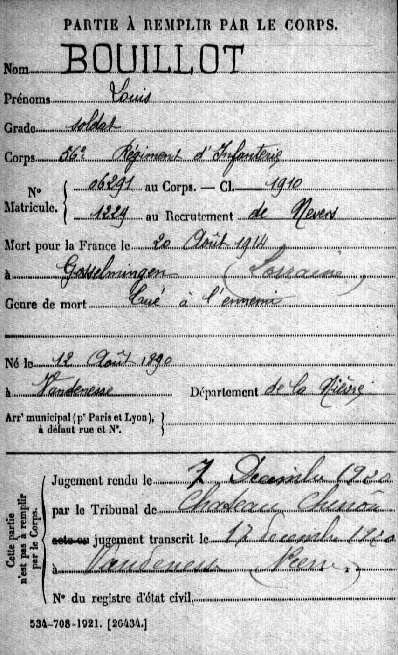 PARTIE À REMPLIR PAR LE CORPS.
Nom BOUILLOT
Prénoms Louis
Grade soldat
Corps 56e Régiment d'Infanterie
N° Matricule. { 06291 au Corps. — Cl. 1910
1229 au Recrutement de Nevers
Mort pour la France le 20 Août 1914
à Gosselmingen (Lorraine)
Genre de mort Tué à l'ennemi
Né le 12 Août 1890
à Vandenesse Département de la Nièvre
Arrt municipal (pr Paris et Lyon), à défaut rue et N°. }
Cette partie n'est pas à remplir par le Corps.
Jugement rendu le 7 Decembre 1920
par le Tribunal de Chateau Chinon
acte ou jugement transcrit le 17 decembre 1920
à Vandenesse (Nievre.)
N° du registre d'état civil
534-708-1921. [26434.]